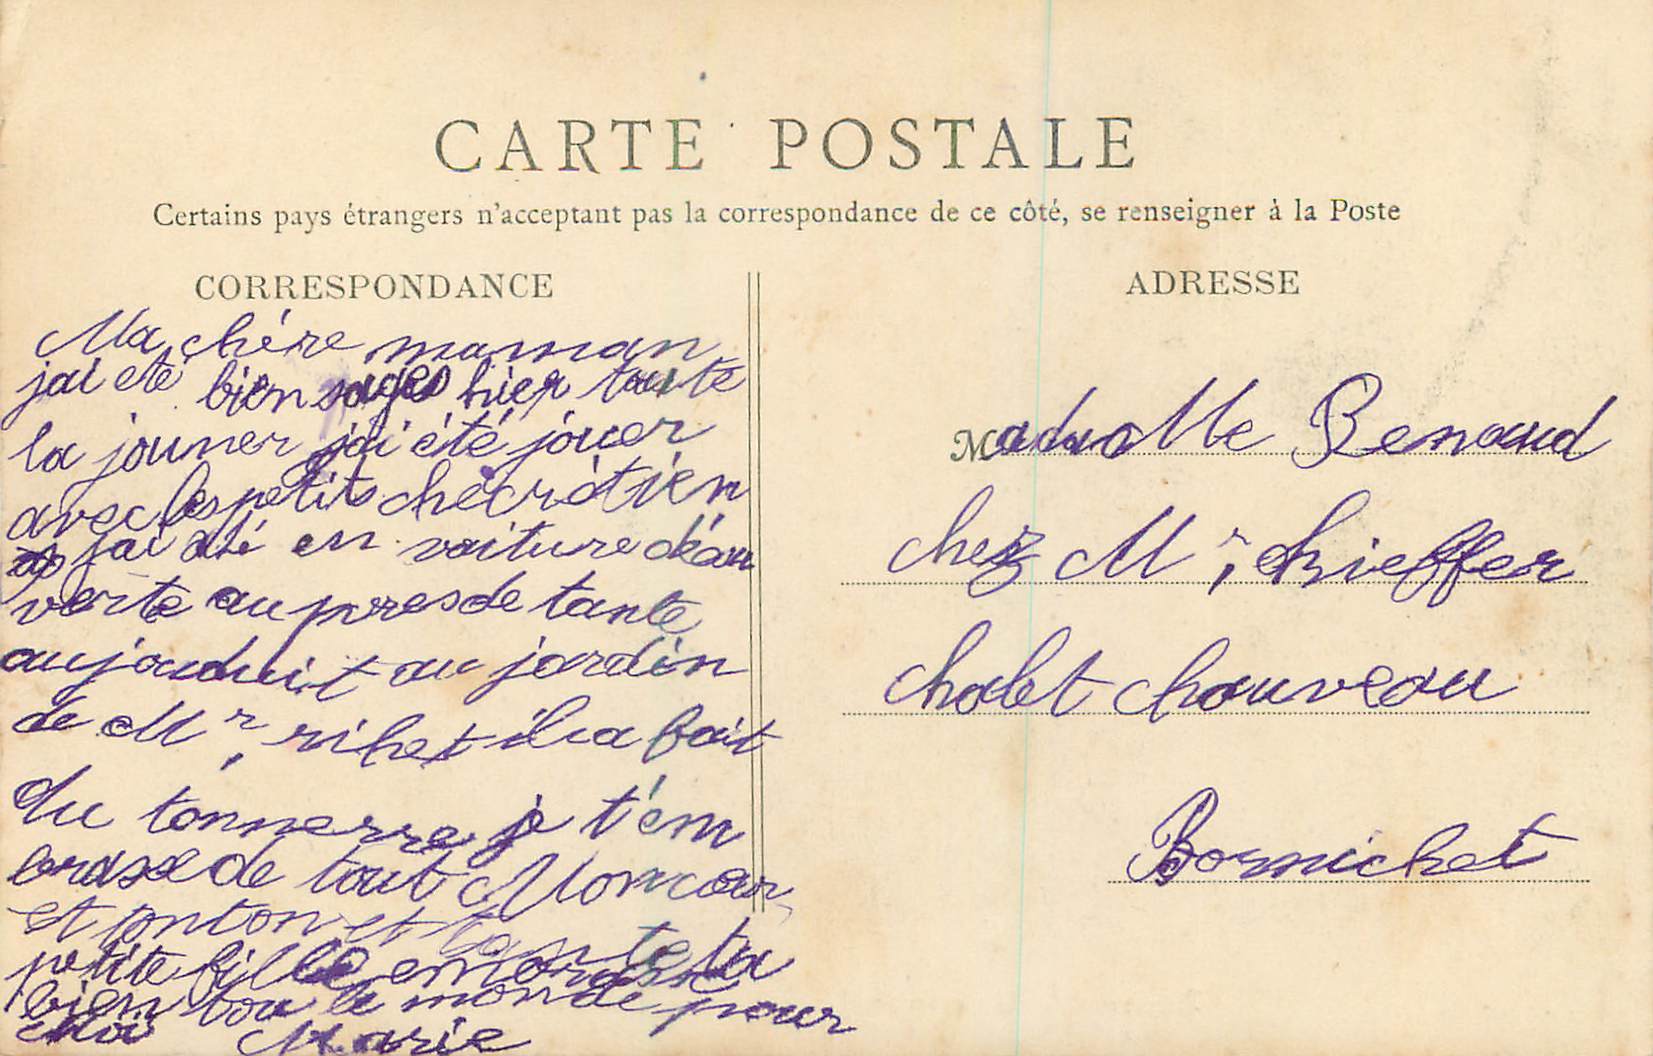 CARTE POSTALE
Certains pays étrangers n'acceptant pas la correspondance de ce côté, se renseigner à la Poste
CORRESPONDANCE
Ma chère maman
jai été bien sages hier toute
la jouner jai été jouer
avec les petits checrétien
jai été en voiture déau
verte au pres de tante
aujouduit au jardin
de Mr rihet il a fait
du tonnerre je t'em
brasse de tout Mon cœur
et tonton et tante ta
petite fille embrasse
bien tou le monde pour
moi Marie
ADRESSE
Madvolle Renaud
chez Mr, chieffer
chalet chauveau
Pornichet